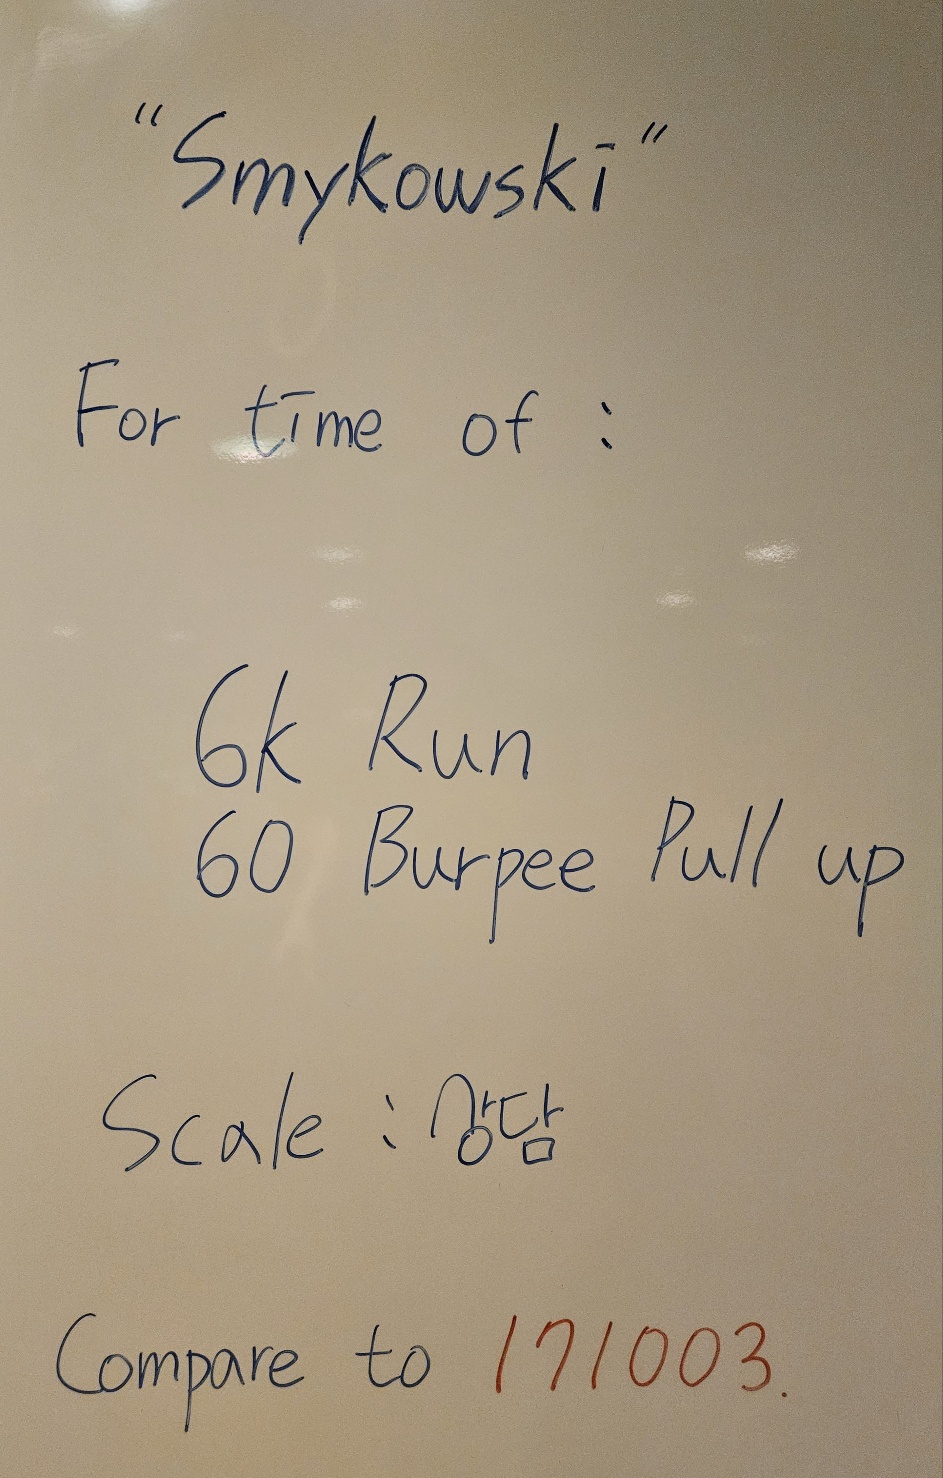 "Smykowski"
For time of :
6k Run
60 Burpee Pull up
Scale : 상담
Compare to 171003.